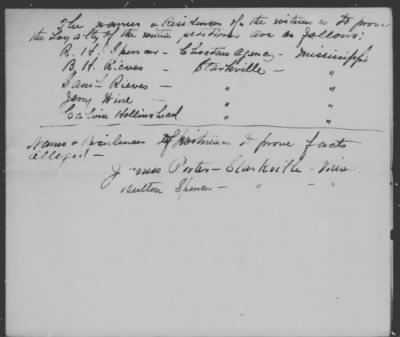 The names & Residences of the witnesses to prove
the Loyalty of the within petitioner are as follows:
R. H. Spencer - Choctaw Agency - Mississippi
B. H. Rieves - Starkville - "
Saml Rieves - " "
Jerry Wine - " "
Calvin Hollinshead " "
Names & Residences of Witnesses to prove facts
alleged -
James Porter - Starkville - Miss
Button Spencer - " - "